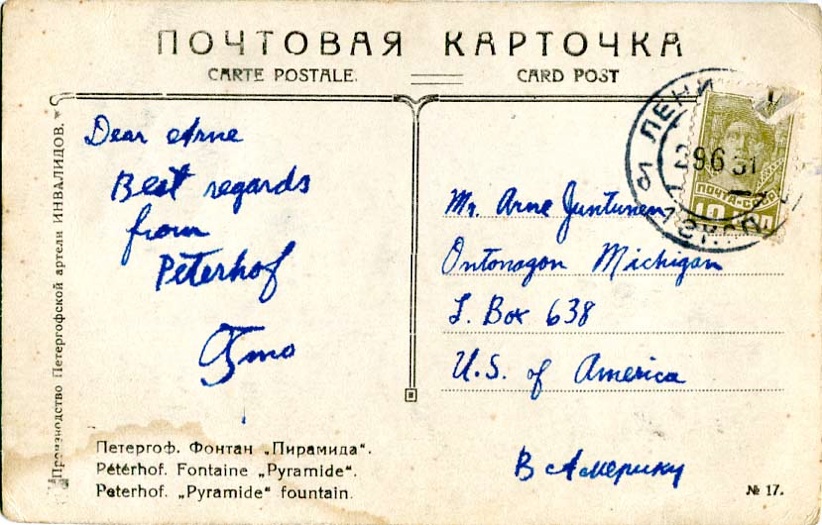 ПОЧТОВАЯ КАРТОЧКА
CARTE POSTALE. CARD POST
Производство Петергофской артели ИНВАЛИДОВ.
Dear Arne
Best regards
from
Peterhof
ЛЕНИ
29 6 31
ПОЧТА-СССР
10
Mr. Arne Juntunen
Ontonagon Michigan
L. Box 638
U.S. of America
В Америку
Петергоф. Фонтан „Пирамида“.
Péterhof. Fontaine „Pyramide“.
Peterhof. „Pyramide“ fountain.
№ 17.